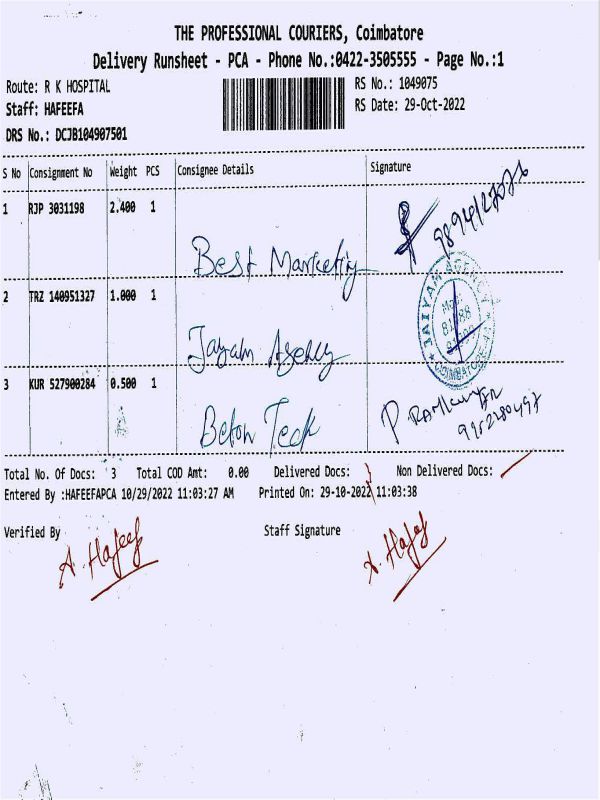 THE PROFESSIONAL COURIERS, Coimbatore
Delivery Runsheet - PCA - Phone No.:0422-3505555 - Page No.:1
Route: R K HOSPITAL
RS No.: 1049075
Staff: HAFEEFA
RS Date: 29-Oct-2022
DRS No.: DCJB104907501
S No Consignment No Weight PCS Consignee Details Signature
1 RJP 3031198 2.400 1
Best Marketing
2 TRZ 140951327 1.000 1
JAIYAM AGENCY
COIMBATORE
Jayam Agency
3 KUR 527900284 0.500 1
Beton Teck
Total No. Of Docs: 3 Total COD Amt: 0.00 Delivered Docs: Non Delivered Docs:
Entered By :HAFEEFAPCA 10/29/2022 11:03:27 AM Printed On: 29-10-2022 11:03:38
Verified By
Staff Signature
A. Hafeef